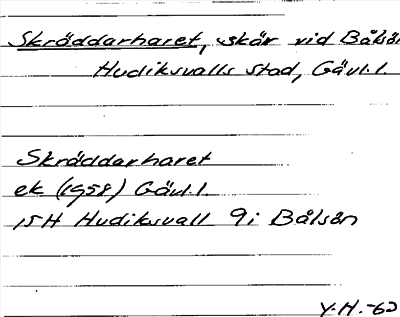 Skräddarharet, skär vid Bålsön
Hudiksvalls stad, Gävl.l.
Skräddarharet
ek. (1958) Gävl.l.
15H Hudiksvall 9i Bålsön
Y.H.-62